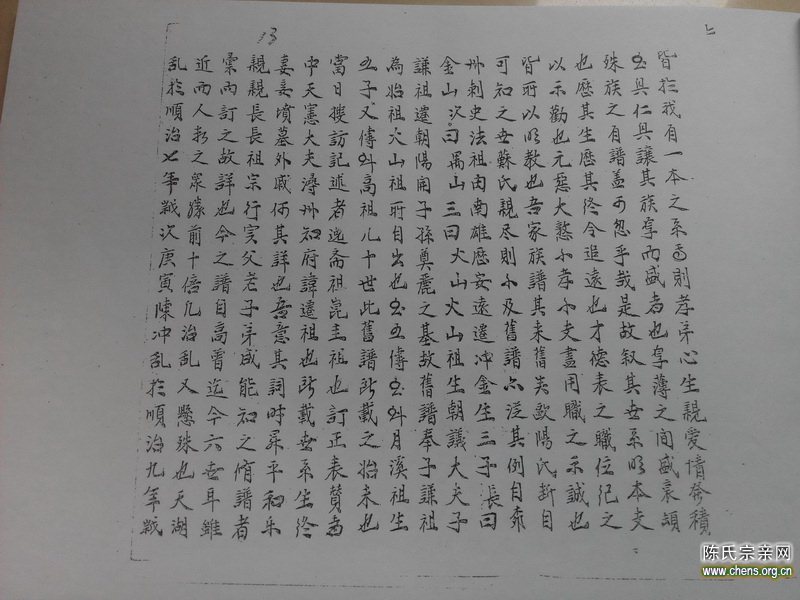 皆於我有一本之系焉则孝弟心生親愛情發積
也興仁興讓其族厚而盛者也厚薄之间盛衰頓
殊族之有譜盖可忽乎哉是故叙其世系明本支
也歷其生歷其终令追遠也才德表之職位纪之
以示勸也元惡大憝不孝不支盡用職之示誠也
皆所以明教也吾家族譜其来舊矣歐陽氏断自
可知之世蘇氏親尽則不及舊譜亦泛其例自
州刺史法祖由南雄歷安遠遣冲金生三子長曰
金山次曰萬山三曰火山火山祖生朝議大夫子
謙祖遣朝陽開子孫奠麗之基故舊譜奉子謙祖
為始祖火山祖所自出也
五子又傳 高祖凡十世此舊譜所載之始末也
當日搜訪記述者逸斋祖崑圭祖也訂正表賛為
中天憲大夫潯州知府諱遷祖也所載世系生终
妻妾墳墓外戚何其詳也吾意其詞時昇平和樂
親親長長祖宗行实父老子弟咸能知之脩譜者
彙而訂之故詳也今之譜自高曾迄今六世耳雖
近而人勑之眾勝前十倍凡治乱又懸殊也天湖
乱於順治七年戦次庚寅陳冲乱於順治九年戦
13
上
陈氏宗亲网
www.chens.org.cn